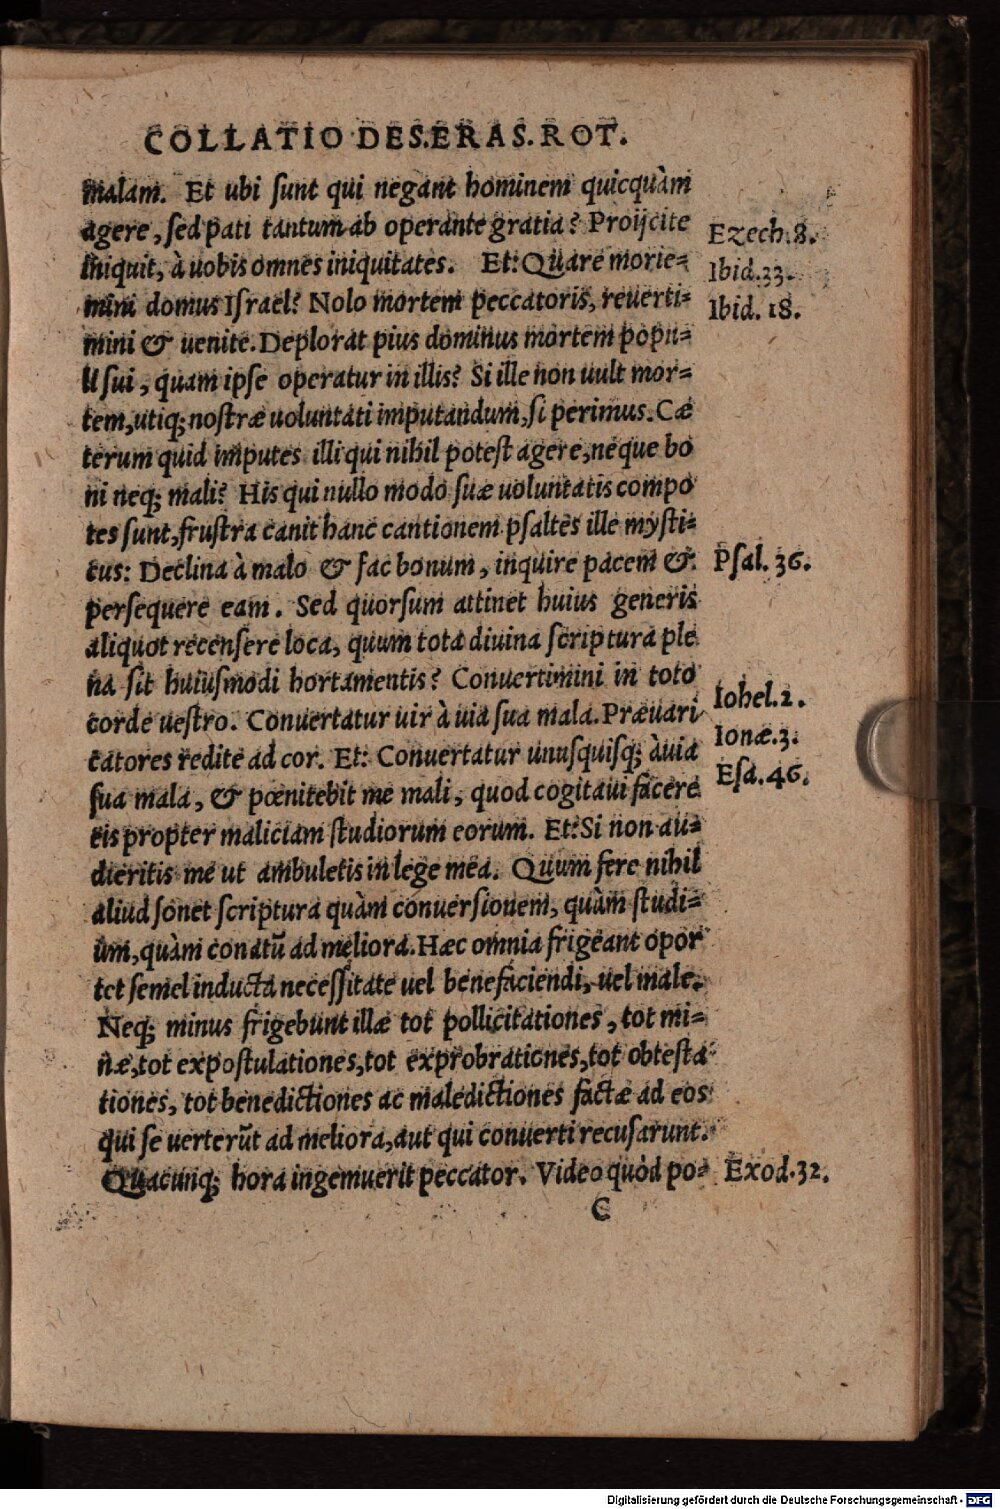 COLLATIO DES.ERAS.ROT.
malam. Et ubi ſunt qui negant hominem quicquàm
agere, ſed pati tantum ab operante gratia? Proijcite
Ezech.8.
inquit, à uobis omnes iniquitates. Et: Quare morie=
Ibid.33.
mini domus Iſrael? Nolo mortem peccatoris, reuerti=
Ibid. 18.
mini & uenite. Deplorat pius dominus mortem popu=
li ſui, quam ipſe operatur in illis? Si ille non uult mor=
tem, utiq; noſtræ uoluntati imputandum, ſi perimus. Cæ
terum quid imputes illi qui nihil poteſt agere, neque bo
ni neq; mali? His qui nullo modo ſuæ uoluntatis compo
tes ſunt, fruſtra canit hanc cantionem pſaltes ille myſti=
cus: Declina à malo & fac bonum, inquire pacem &
Pſal. 36.
perſequere eam. Sed quorſum attinet huius generis
aliquot recenſere loca, quum tota diuina ſcriptura ple
na ſit huiuſmodi hortamentis? Conuertimini in toto
Iohel.2.
corde ueſtro. Conuertatur uir à uia ſua mala. Præuari
Ionæ.3.
catores redite ad cor. Et: Conuertatur unuſquiſq; à uia
Eſa.46.
ſua mala, & pœnitebit me mali, quod cogitaui facere
eis propter maliciam ſtudiorum eorum. Et: Si non au=
dieritis me ut ambuletis in lege mea. Quum fere nihil
aliud ſonet ſcriptura quàm conuerſionem, quàm ſtudi=
um, quàm conatū ad meliora. Hæc omnia frigeant opor
tet ſemel inducta neceſſitate uel benefaciendi, uel male.
Neq; minus frigebunt illæ tot pollicitationes, tot mi=
næ, tot expoſtulationes, tot exprobrationes, tot obteſta
tiones, tot benedictiones ac maledictiones factæ ad eos
qui ſe uerterūt ad meliora, aut qui conuerti recuſarunt.
Quacunq; hora ingemuerit peccator. Video quòd po=
Exod.32.
C
Digitalisierung gefördert durch die Deutsche Forschungsgemeinschaft - DFG